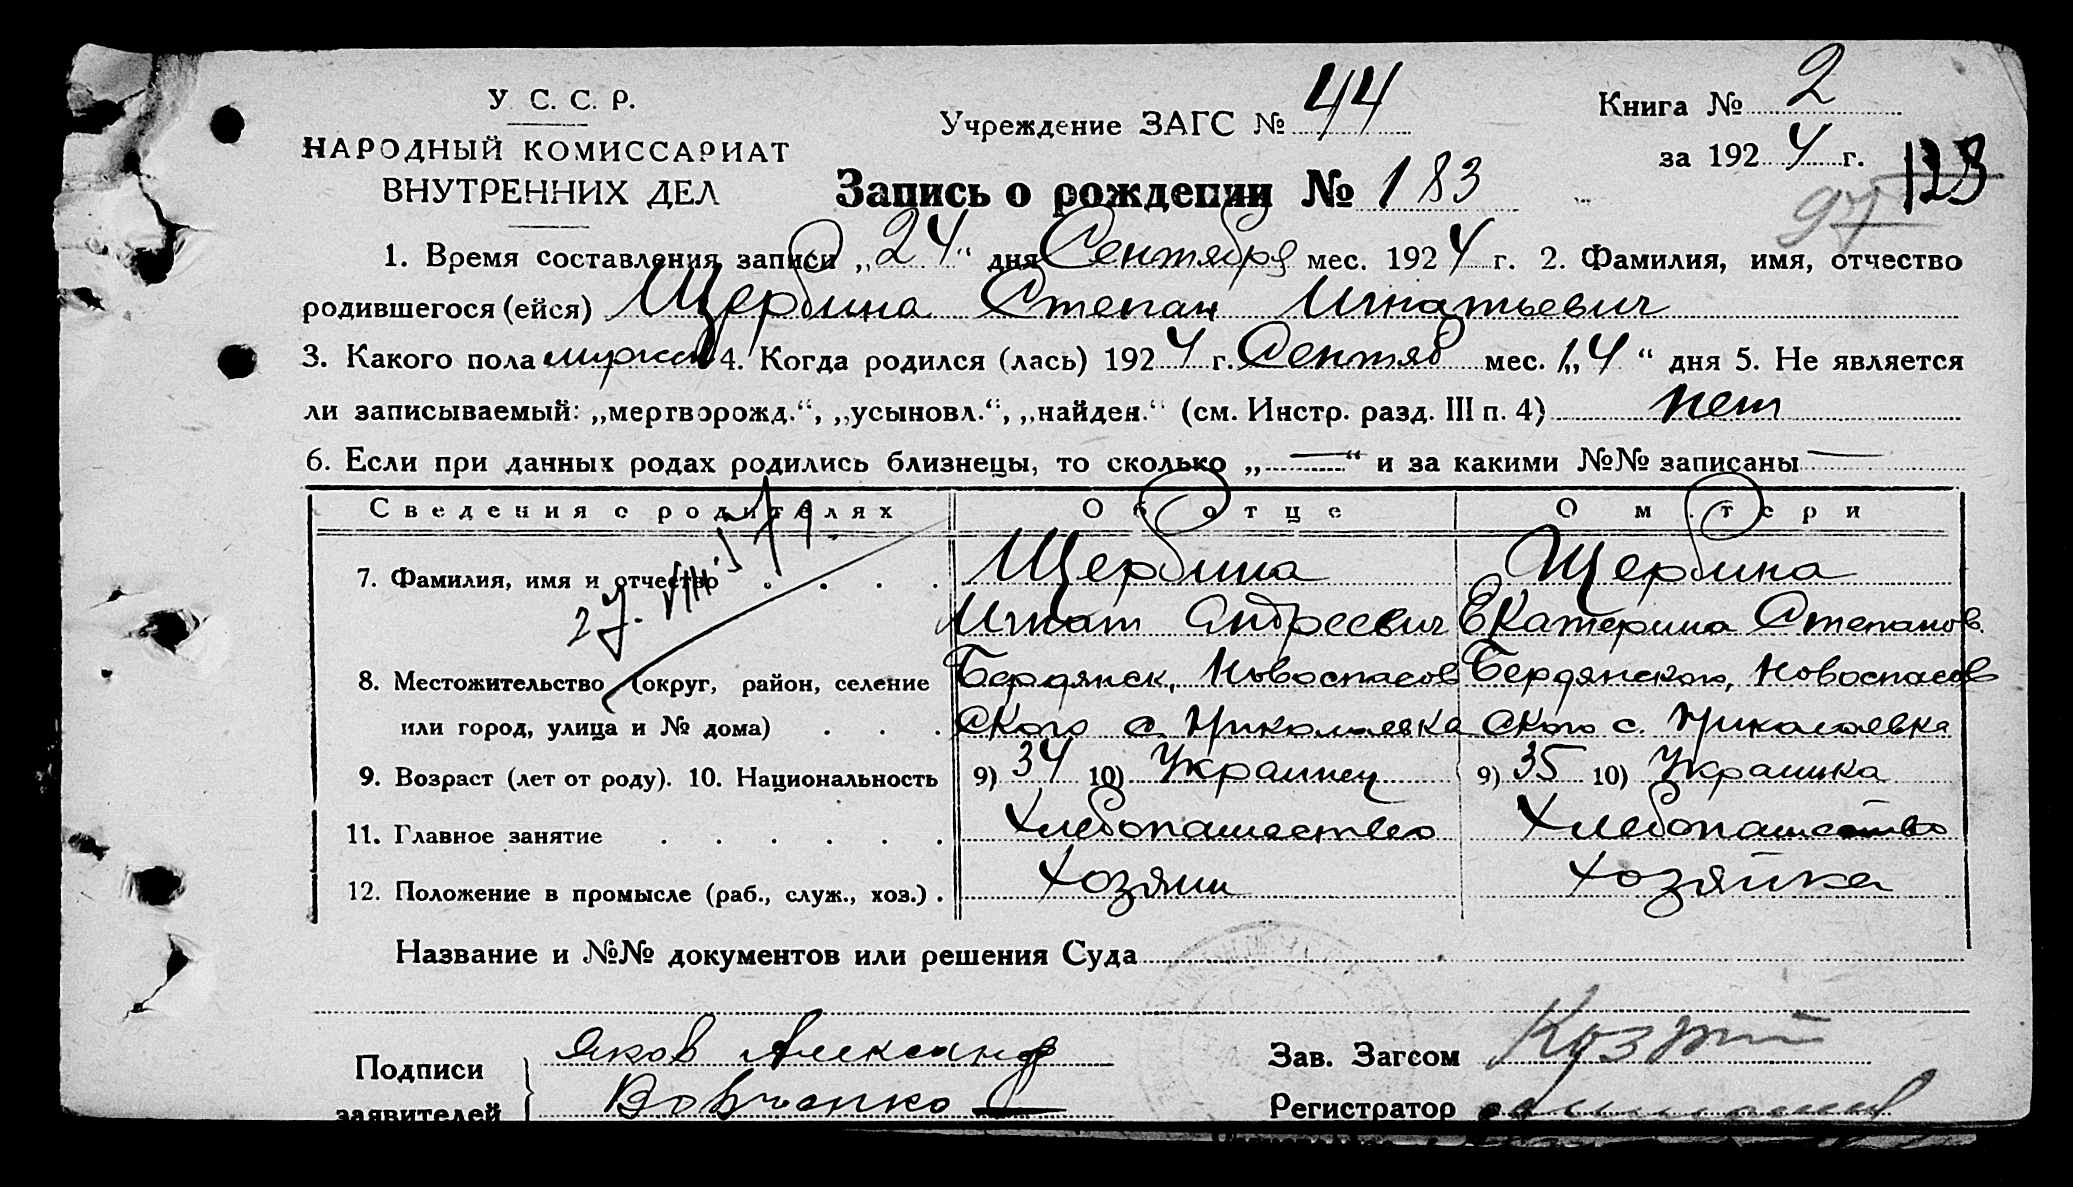 У. С. С. Р.
НАРОДНЫЙ КОМИССАРИАТ
ВНУТРЕННИХ ДЕЛ
Учреждение ЗАГС № 44
Книга № 2
за 1924 г.
123
97
Запись о рождении № 183
1. Время составления записи „24“ дня Сентября мес. 1924 г. 2. Фамилия, имя, отчество
родившегося (ейся) Щербина Степан Игнатьевич
3. Какого пола мужск 4. Когда родился (лась) 1924 г. Сентяб мес. 1„4“ дня 5. Не является
ли записываемый: „мертворожд.“, „усыновл.“, „найден.“ (см. Инстр. разд. III п. 4) нет
6. Если при данных родах родились близнецы, то сколько „—“ и за какими №№ записаны —
Сведения о родителях О б о тц е О м а т е р и
7. Фамилия, имя и отчество . . . . Щербина Щербина
Игнат Андреевич Екатерина Степанов.
8. Местожительство (округ, район, селение Бердянск, Новоспасов Бердянского, Новоспасов
или город, улица и № дома) . . . ского с. Николаевка ского с. Николаевка
9. Возраст (лет от роду). 10. Национальность 9) 34 10) Украинец 9) 35 10) Украинка
11. Главное занятие . . . . . . Хлебопашество Хлебопашество
12. Положение в промысле (раб., служ., хоз.) . Хозяин Хозяйка
Название и №№ документов или решения Суда
Подписи
заявителей
Яков Александ
Вовченко
Зав. Загсом
Регистратор